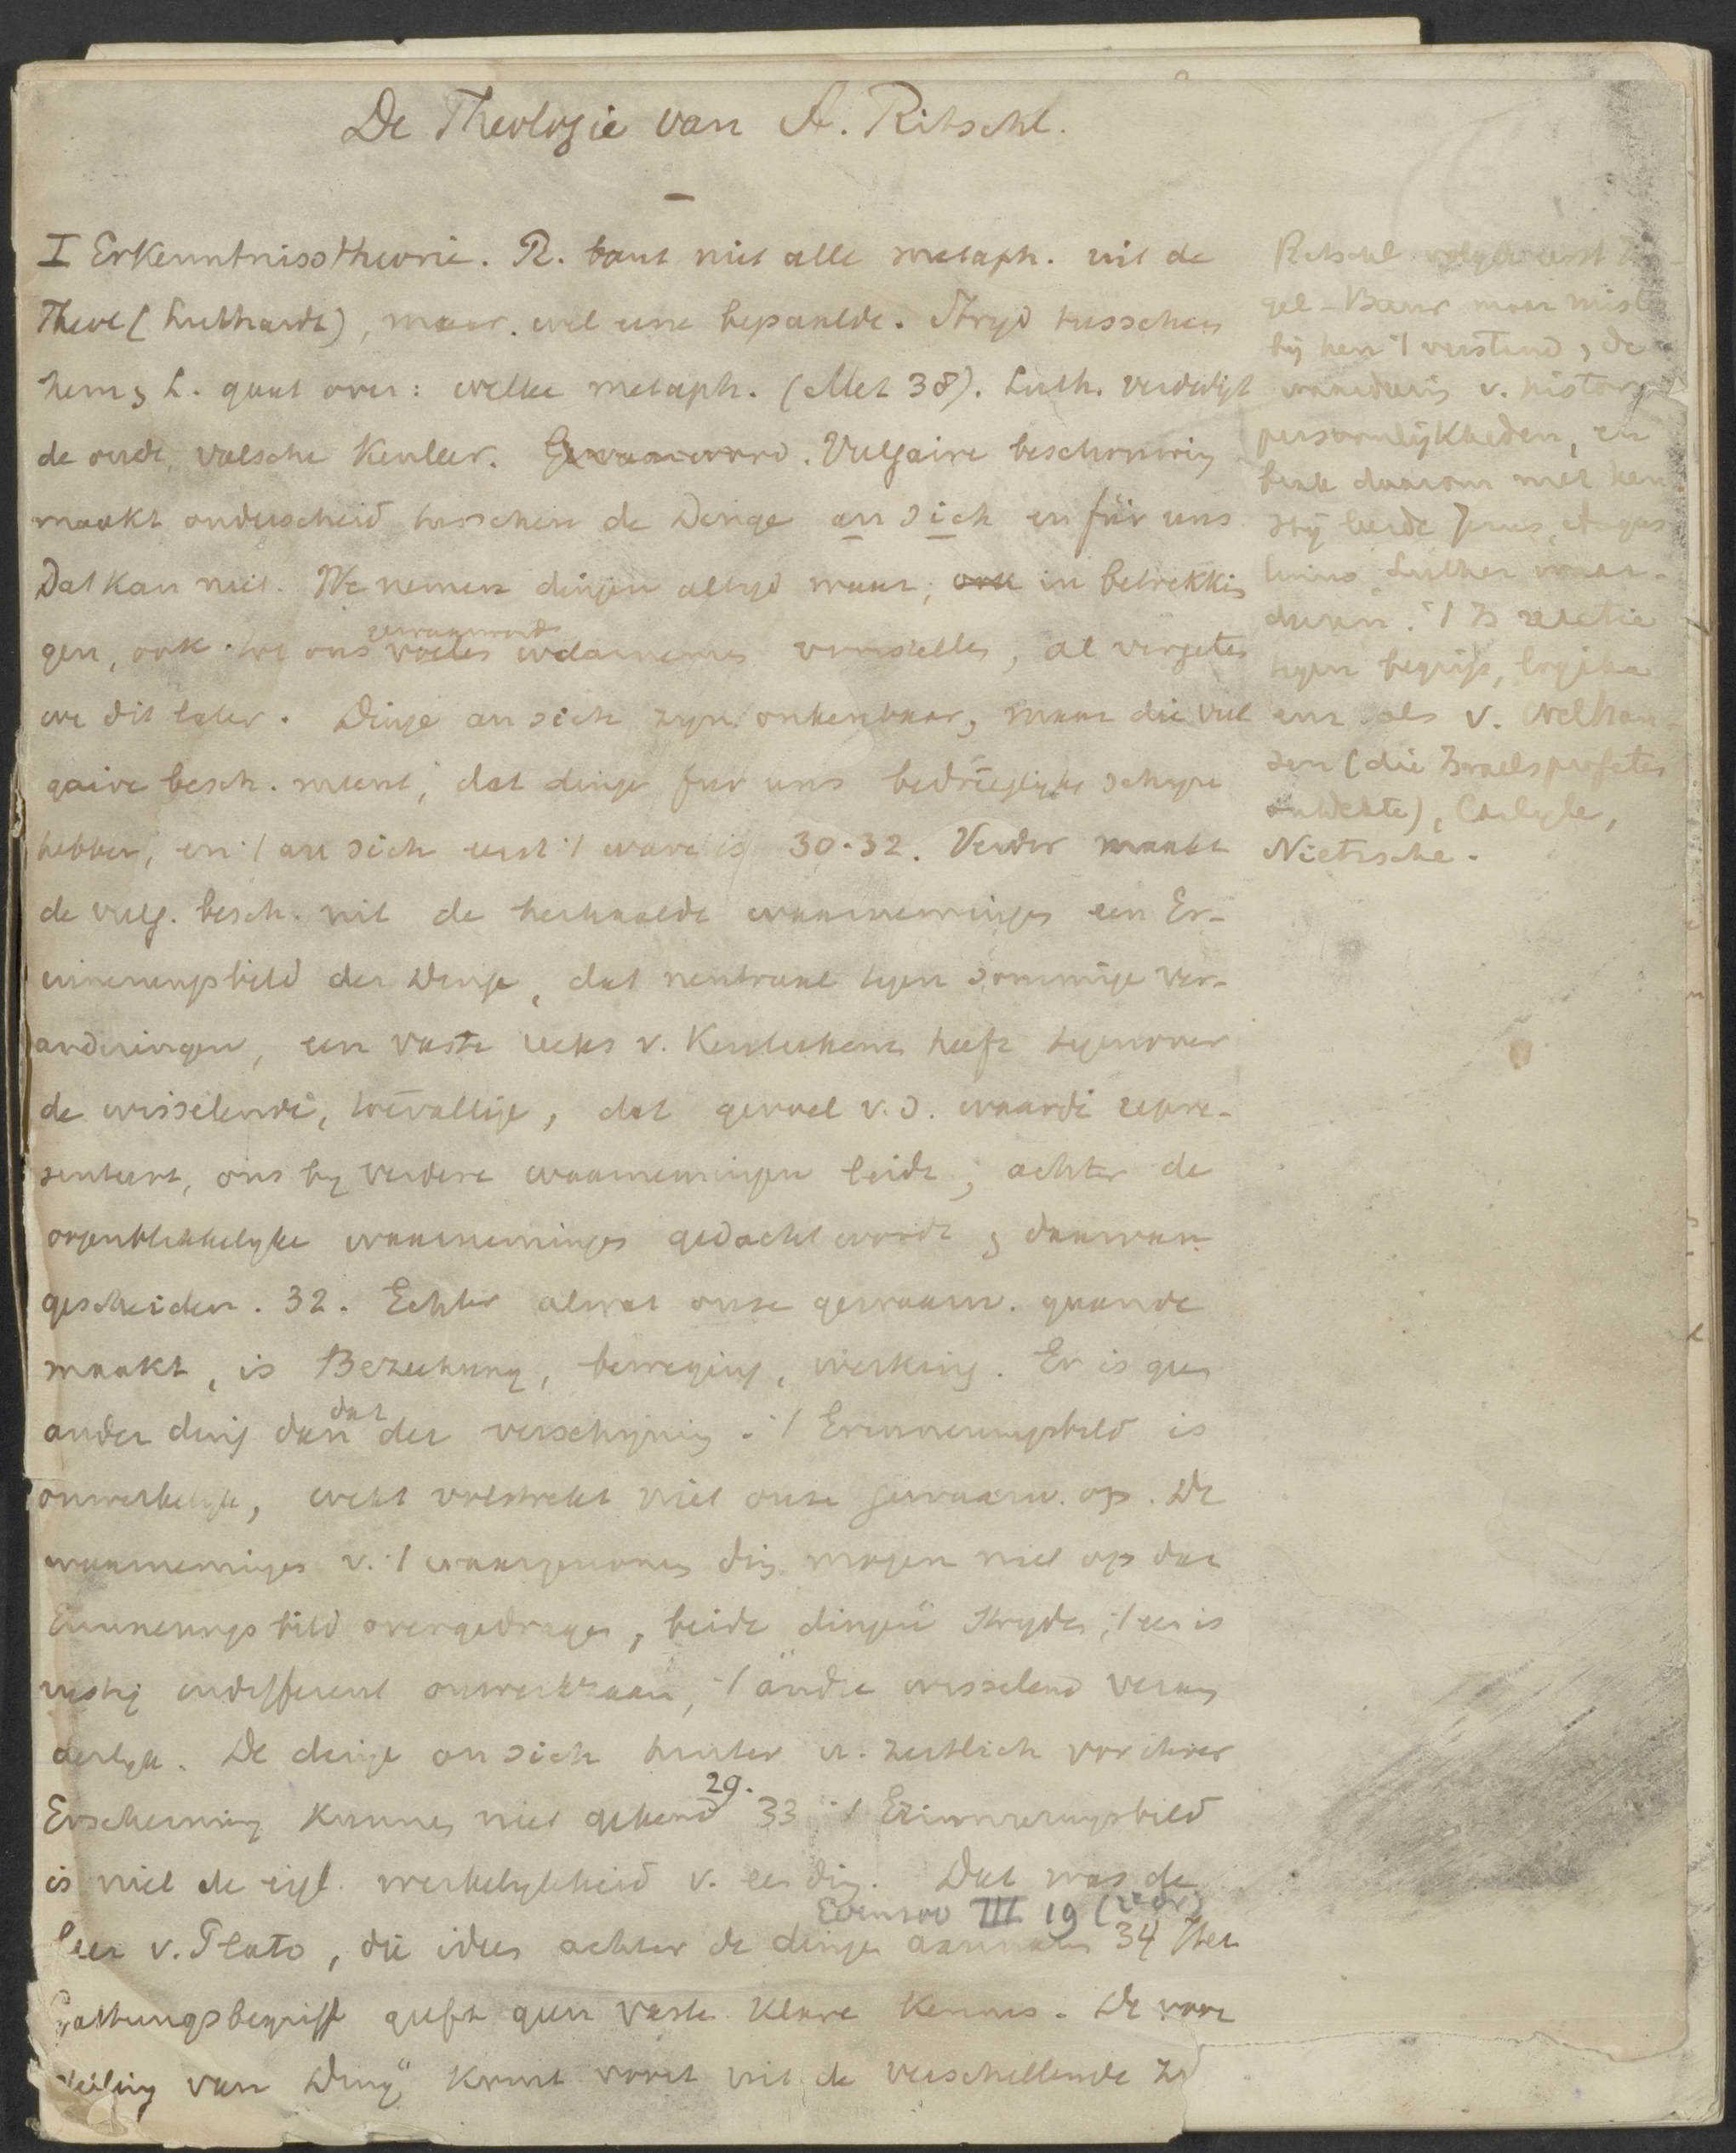 De Theologie van A. Ritschl.
I Erkenntnisstheorie. R. bant niet alle metaph. uit de
Theol (Luthardt), maar wel eene bepaalde. Stryd tusschen
hem & L. gaat over: welke metaph. (Met 38). Luth. verdedigt
de oude, valsche kenleer. Vulgaire beschouwing
maakt onderscheid tusschen de Dinge an sich en für uns
Dat kan niet. We nemen dingen altyd waar, ook in betrekkin
gen, ook we ons gewaarword voorstellen, al vergeten
we dit later. Dinge an sich zyn onkenbaar, maar die vul
gaire besch. meent, dat dinge fur uns bedriegelyken schyn
hebben, en 't an sich eerst 't ware is 30-32. Verder maakt
de vulg. besch. uit de herhaalde waarnemingen een Er-
innerungsbild der Dinge, dat neutraal tegen sommige ver-
anderingen, een vaste reeks v. kenteekens heeft tegenover
de wisselende, toevallige, dat gevoel v. d. waarde repre-
senteert, ons by verdere waarnemingen leidt, achter de
oogenblikkelyke waarnemingen gedacht wordt & daarvan
gescheiden. 32. Echter alwat onze gewaarw. gaande
maakt, is Beziehung, beweging, werking. Er is geen
ander ding dan dat der verschijning. 't Erinnerungsbild is
onwerkelyk, wekt volstrekt niet onze gewaarw. op. De
waarnemingen v. 't waargenomen ding mogen niet op dat
Erinnerungsbild overgedragen, beide dingen stryden, 't een is
rustig indifferent onwerkzaam, 't andre wisselend veran
derlyk. De dinge an sich hinter u. zeitlich vor ihrer
Erscheinung kunnen niet gekend 29. 33 't Erinnerungsbild
is niet de eigl. werkelykheid v. een ding. Dat was de
Evenzoo III 19 (
leer v. Plato, die idees achter de dingen aannam 34 Het
Gattungsbegriff geeft geen vaste klare kennis. De voor
stelling van "Ding" komt voort uit de verschillende
Ritschl volgde eerst He-
gel-Baur maar miste
bij hen 't verstand, de
waardeering v. histor.
persoonlijkheden, en
brak daarom met hen
Hij leerde Jezus, Augus
tinus Luther waar-
deeren. 't Is reactie
tegen begrip, logika
enz. als v. Welhau-
sen (die Israels profeten
ontdekte), Carlyle,
Nietzsche.